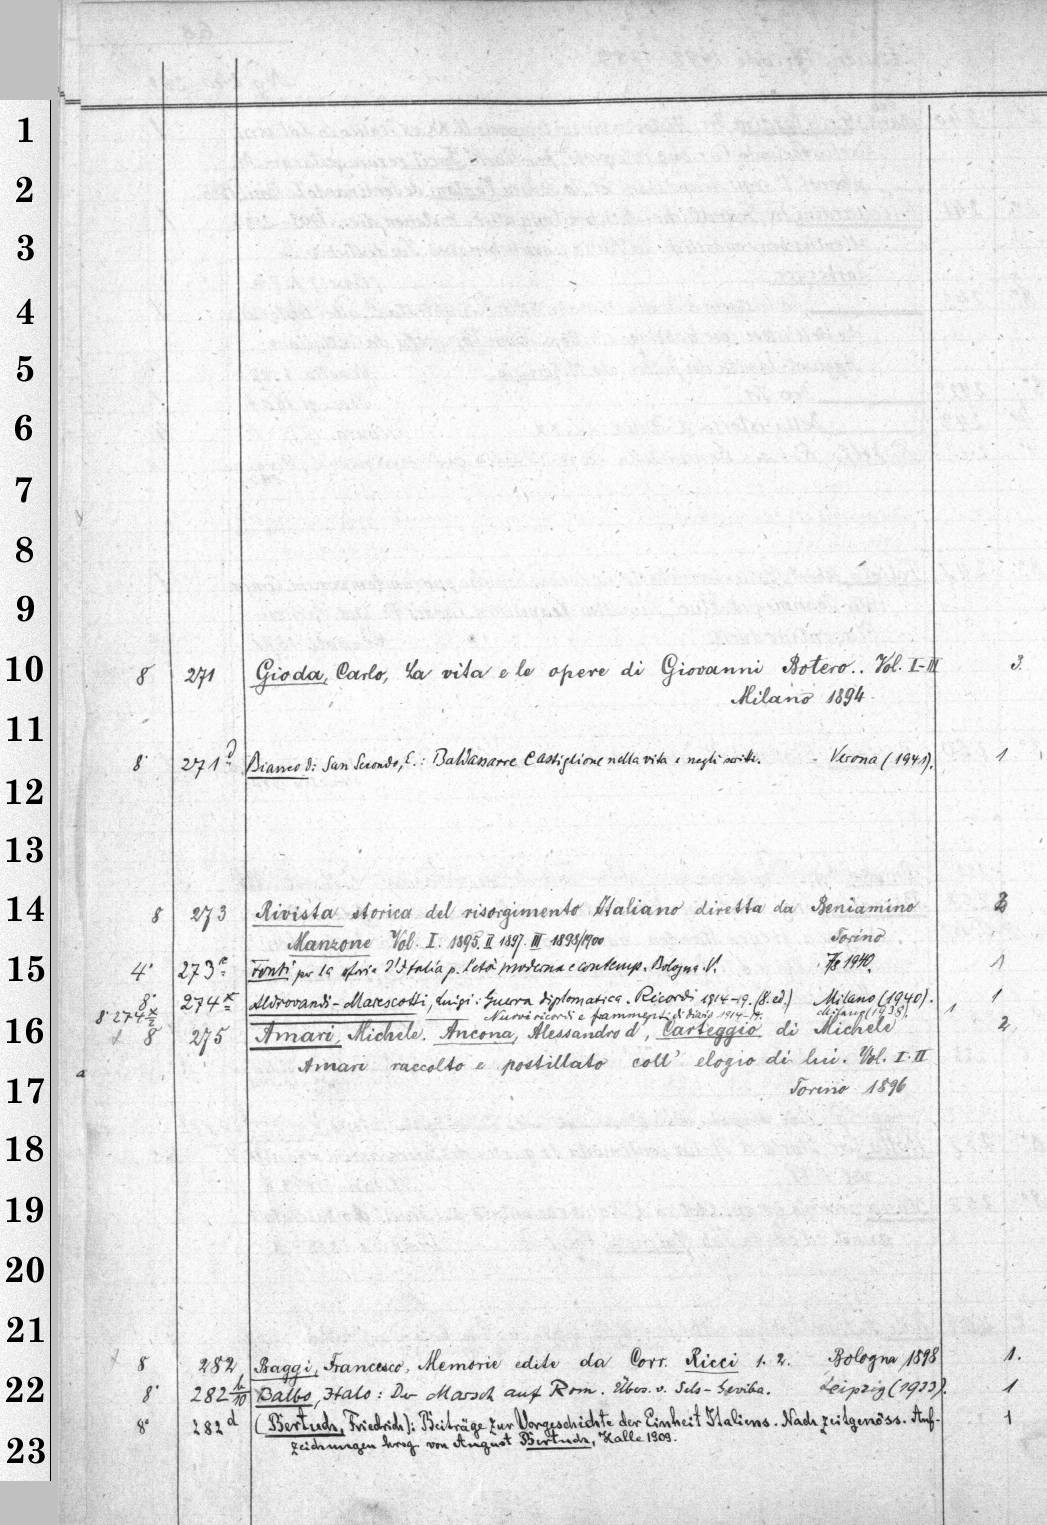 1
2
3
4
5
6
7
8
9
10
8° 271 Gioda, Carlo, La vita e le opere di Giovanni Botero.. Vol. I-III 3.
Milano 1894.
11
8° 271 d Bianco di San Secondo, E.: Baldassarre Castiglione nella vita e negli scritti. - Verona (1941). 1
12
13
14
8 273 Rivista storica del risorgimento Italiano diretta da Beniamino
Manzone Vol. I. 1895. II 1897. III 1898/1900 Torino
15
4° 273 Fonti per la storia d'Italia p. l'età moderna e contemp. Bologna. 1940. 1
8° 274 x Aldrovandi-Marescotti, Luigi: Guerra diplomatica. Ricordi 1914-19. (8. ed.) Milano (1940). 1
8° 274 x/2 Nuovi ricordi e frammenti di diario 1914-19. Milano (1938). 1
16
8 275 Amari, Michele. Ancona, Alessandro d', Carteggio di Michele 2
Amari raccolto e postillato coll' elogio di lui. Vol. I-II
17
Torino 1896
18
19
20
21
8 282 Baggi, Francesco, Memorie edite da Corr. Ricci 1. 2. Bologna 1898 1.
22
8° 282 Balbo, Italo: Der Marsch auf Rom. Übers. v. Leipzig (1933). 1
8° 282 d (Bertuch, Friedrich): Beiträge zur Vorgeschichte der Einheit Italiens. Nach zeitgenöss. Auf- 1
23
zeichnungen hrsg. von August Bertuch, Halle 1909.